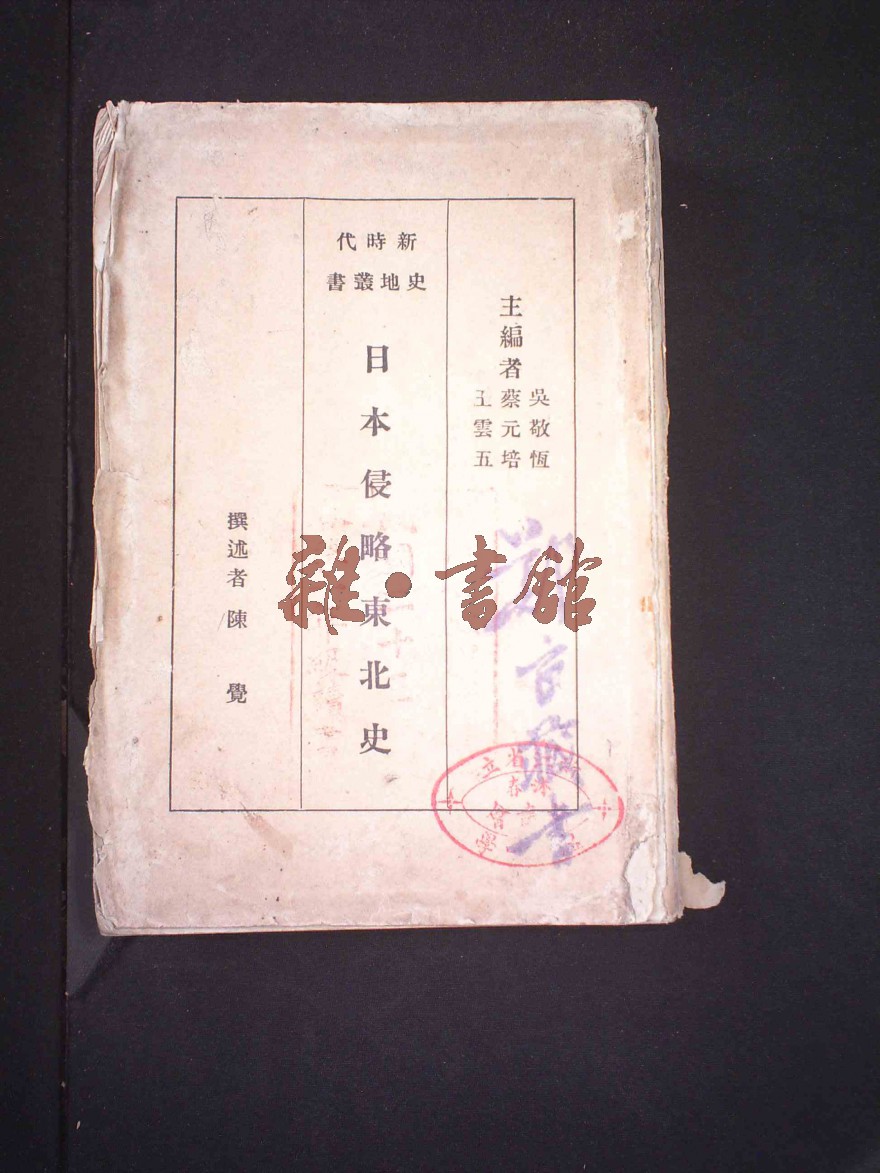 主編者
吳敬恆
蔡元培
王雲五
新時代
史地叢書
日本侵略東北史
撰述者 陳 覺
雜·書館
省立